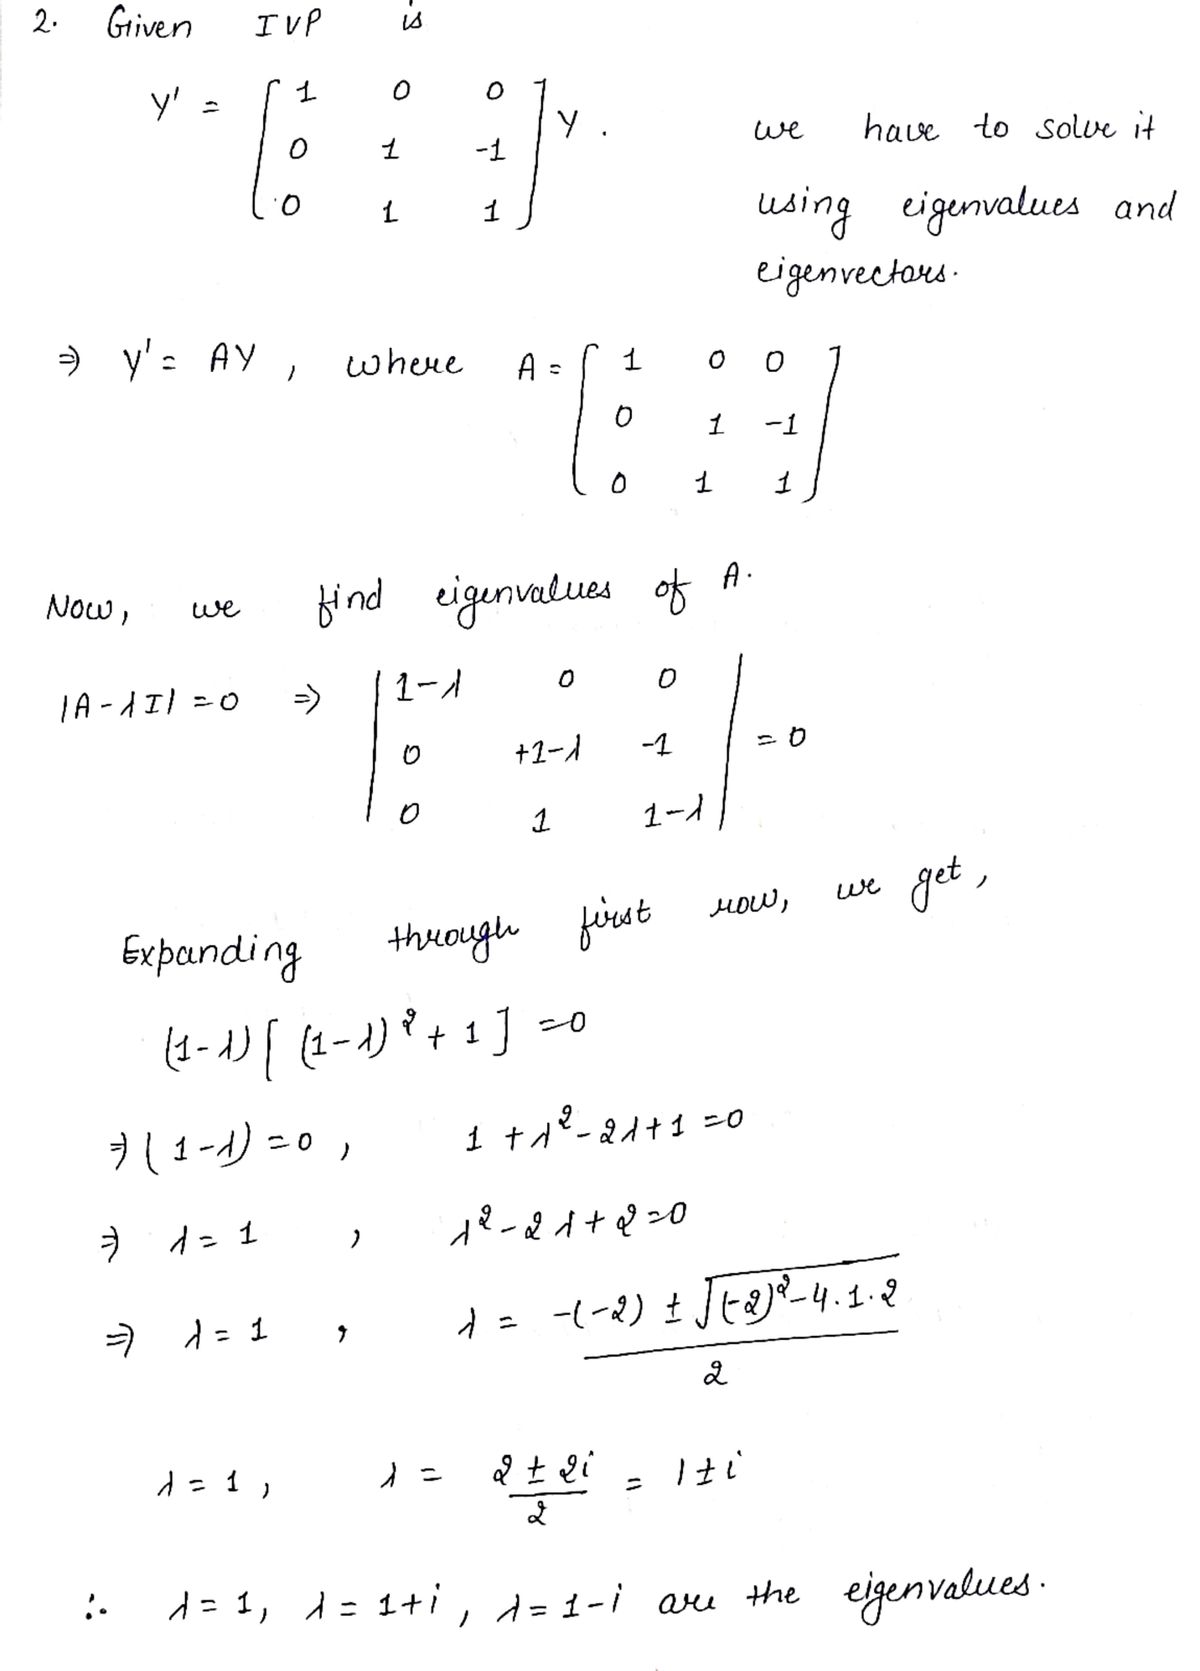 2. Given IVP is
Y' = [ 1 0 0
0 1 -1
0 1 1 ] Y .
we have to solve it
using eigenvalues and
eigenvectors.
⇒ Y' = AY , where A = [ 1 0 0
0 1 -1
0 1 1 ]
Now, we find eigenvalues of A.
|A-λI| = 0 ⇒ | 1-λ 0 0
0 +1-λ -1
0 1 1-λ | = 0
Expanding through first row, we get,
(1-λ)[ (1-λ)² + 1 ] = 0
⇒ (1-λ) = 0 , 1 + λ² - 2λ + 1 = 0
⇒ λ = 1 , λ² - 2λ + 2 = 0
⇒ λ = 1 , λ = -(-2) ± √(-2)² - 4.1.2
2
λ = 1 , λ = 2 ± 2i / 2 = 1 ± i
∴ λ = 1, λ = 1+i , λ = 1-i are the eigenvalues.